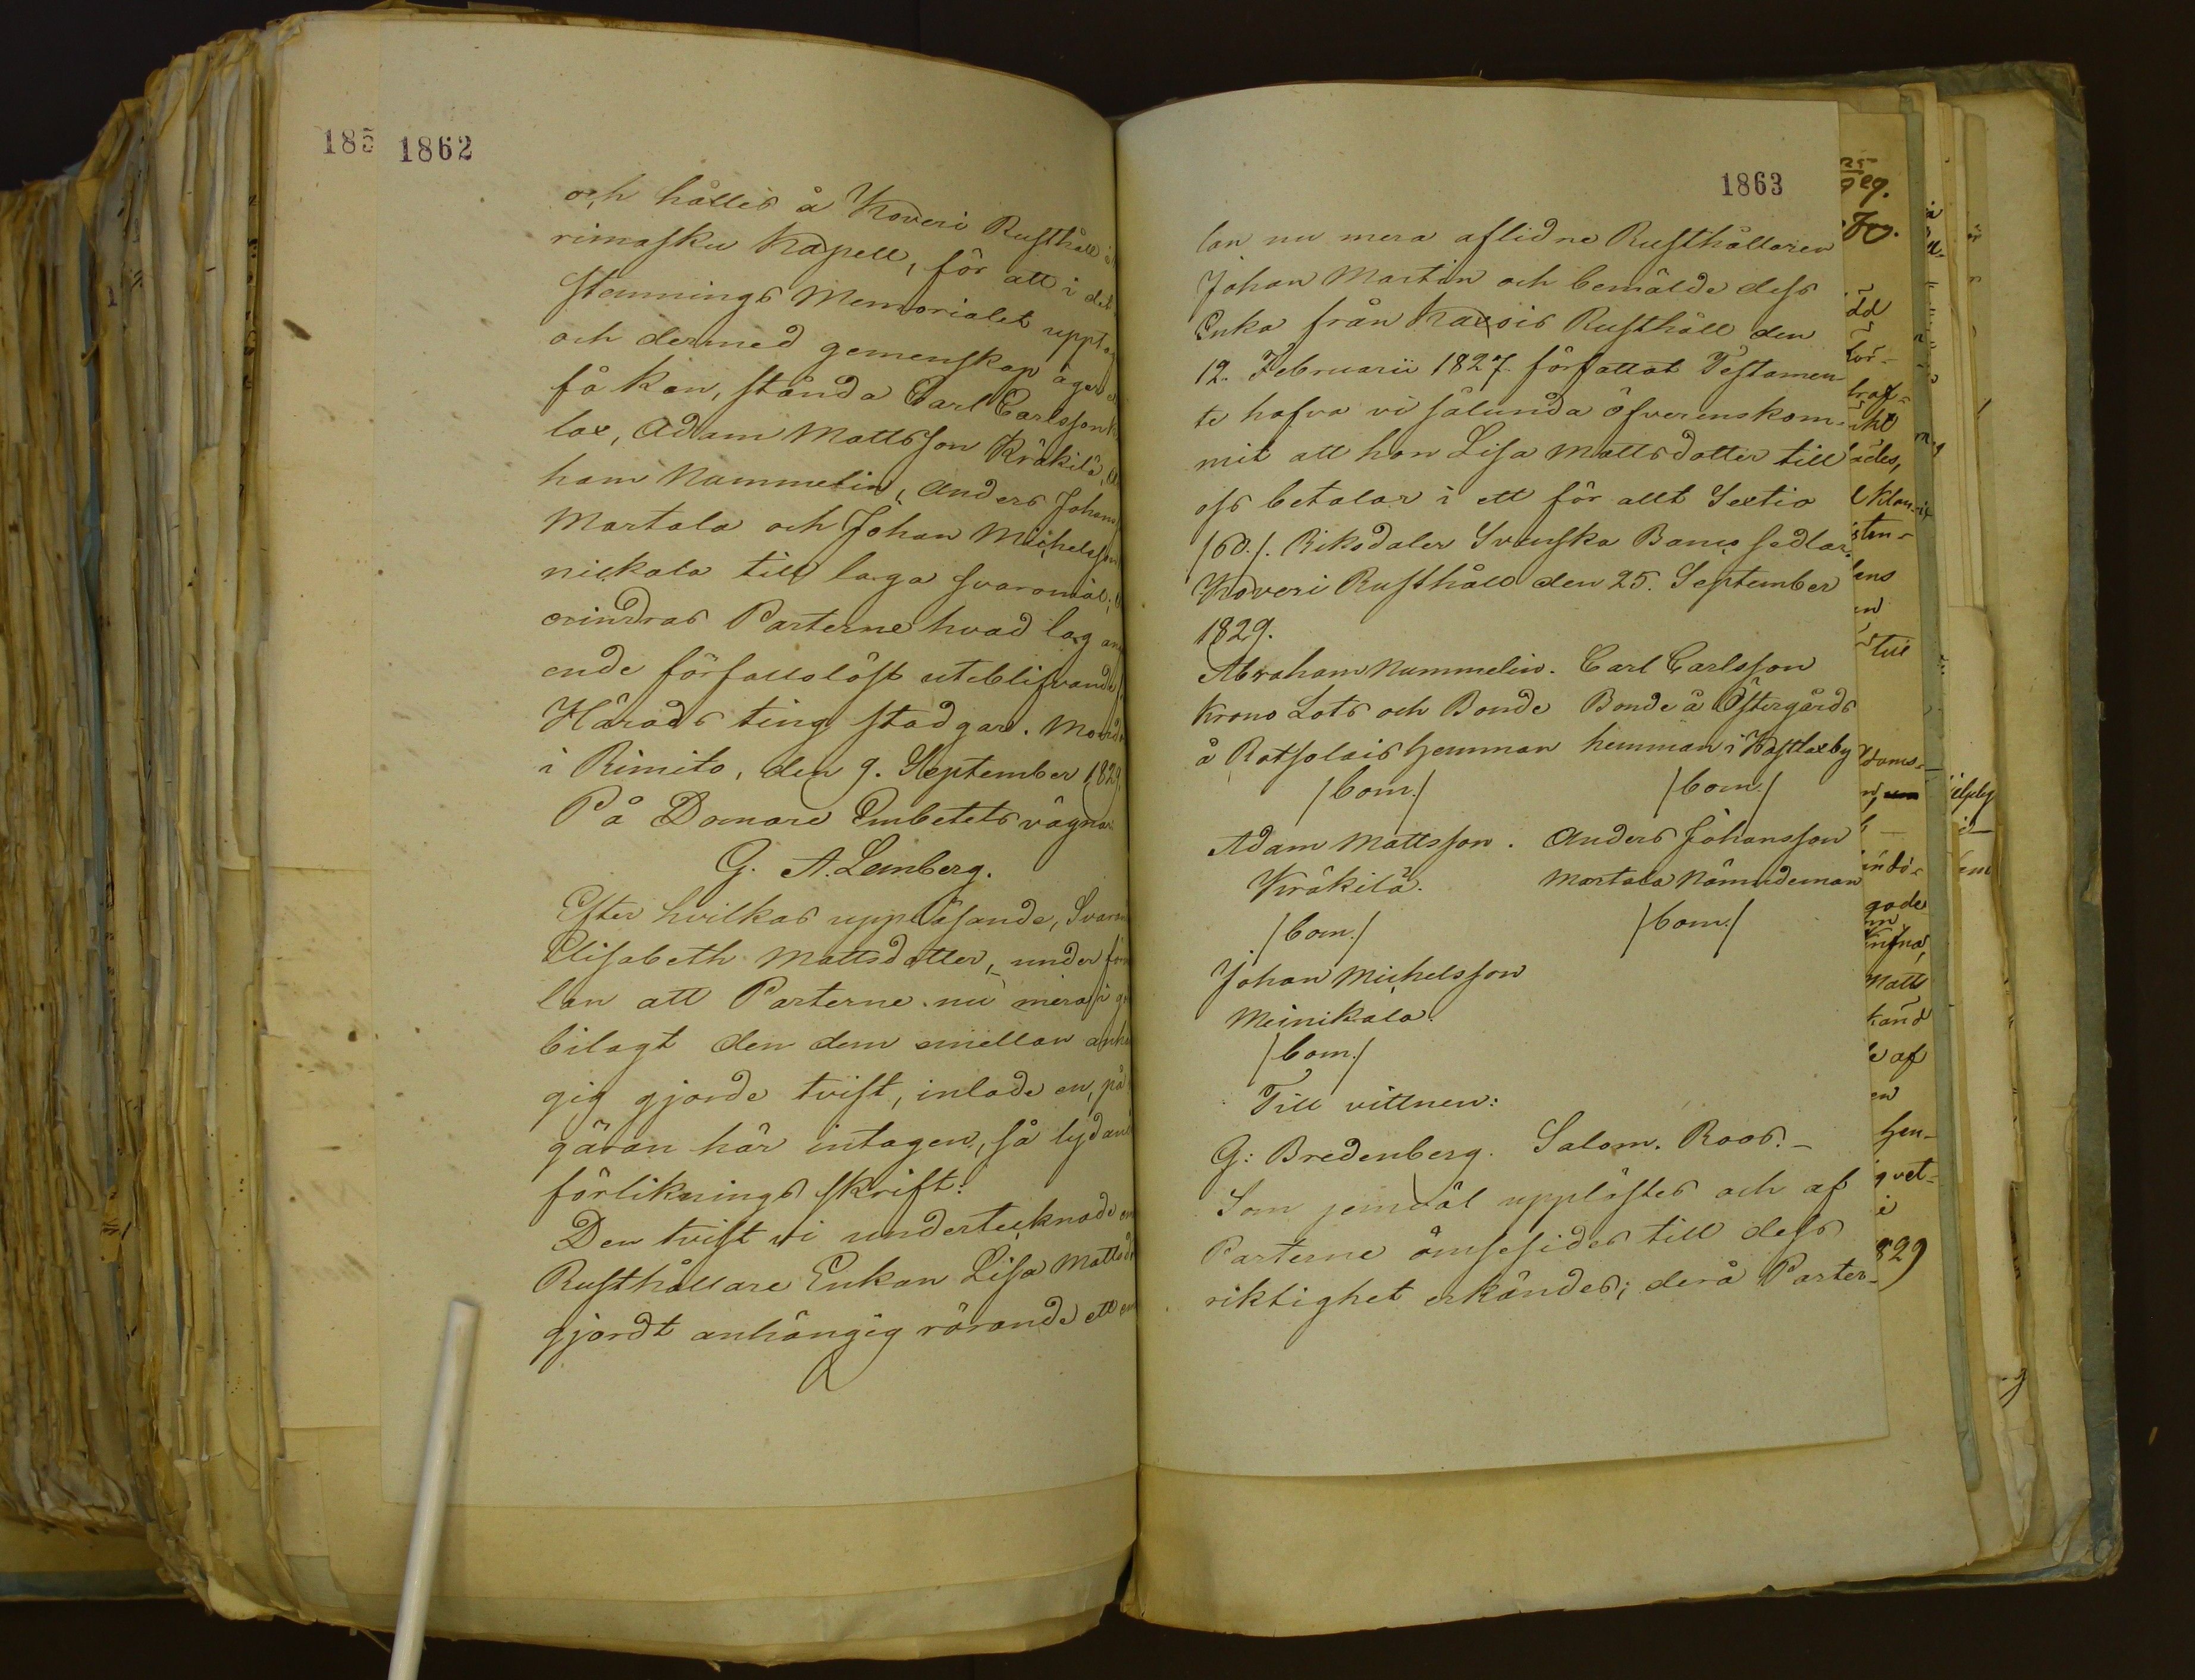 1862
och hålles å Koveri Rusthåll i
rimasku Kapell, för att i det
Stemnings Memorialet upptog
och dermed gemenskap äger e
få kan, stånda Carl Carlsson
lax, Adam Mattsson Kräkilä,
ham Nummelin, Anders Johans
Martala och Johan Michelsson
nickala till laga svaromål,
erindras Parterne hvad lag an
ende förfallolöst uteblifvande
Härads ting stadgar.
i Rimito, den 9. September 1829.
På Domare Embetets vägnar
G. A. Lemberg.
Efter hvilkas uppläsande, Svaran
Elisabeth Mattsdotter, under för
lan att Parterne nu mera i
bilagt den dem emellan anhä
gig gjorde tvist, inlade en, på
gäran här intagen, så lydand
förliknings skrift:
Den tvist vi undertecknade
Rusthållare Enkan Lisa Mattsd
gjordt anhängig rörande ett
1863
lan nu mera aflidne Rusthållaren
Johan Martin och bemälde dess
Enka från Kaxois Rusthåll den
12. Februarii 1827. författat Testamen
te hafva vi sålunda öfverenskom-
mit att hon Lisa Mattsdotter till
oss betalar i ett för allt Sextio
/60./. Riksdaler Svenska Banco sedlar.
Koveri Rusthåll den 25. September
1829.
Abraham Nummelin. Carl Carlsson
Krono Lots och Bonde Bonde å Östergårds
å Rotsolais Hemman hemman i Hastlaxby
/bom./ /bom./
Adam Mattsson. Anders Johansson
Kräkilä. Martala Nämndeman
/bom./ /bom./
Johan Michelsson
Meinikala.
/bom./
Till vittnen:
G: Bredenberg. Salom. Roos.
Som jemväl upplästes och af
Parterne ömsesides till dess
riktighet erkändes; derå Parter-